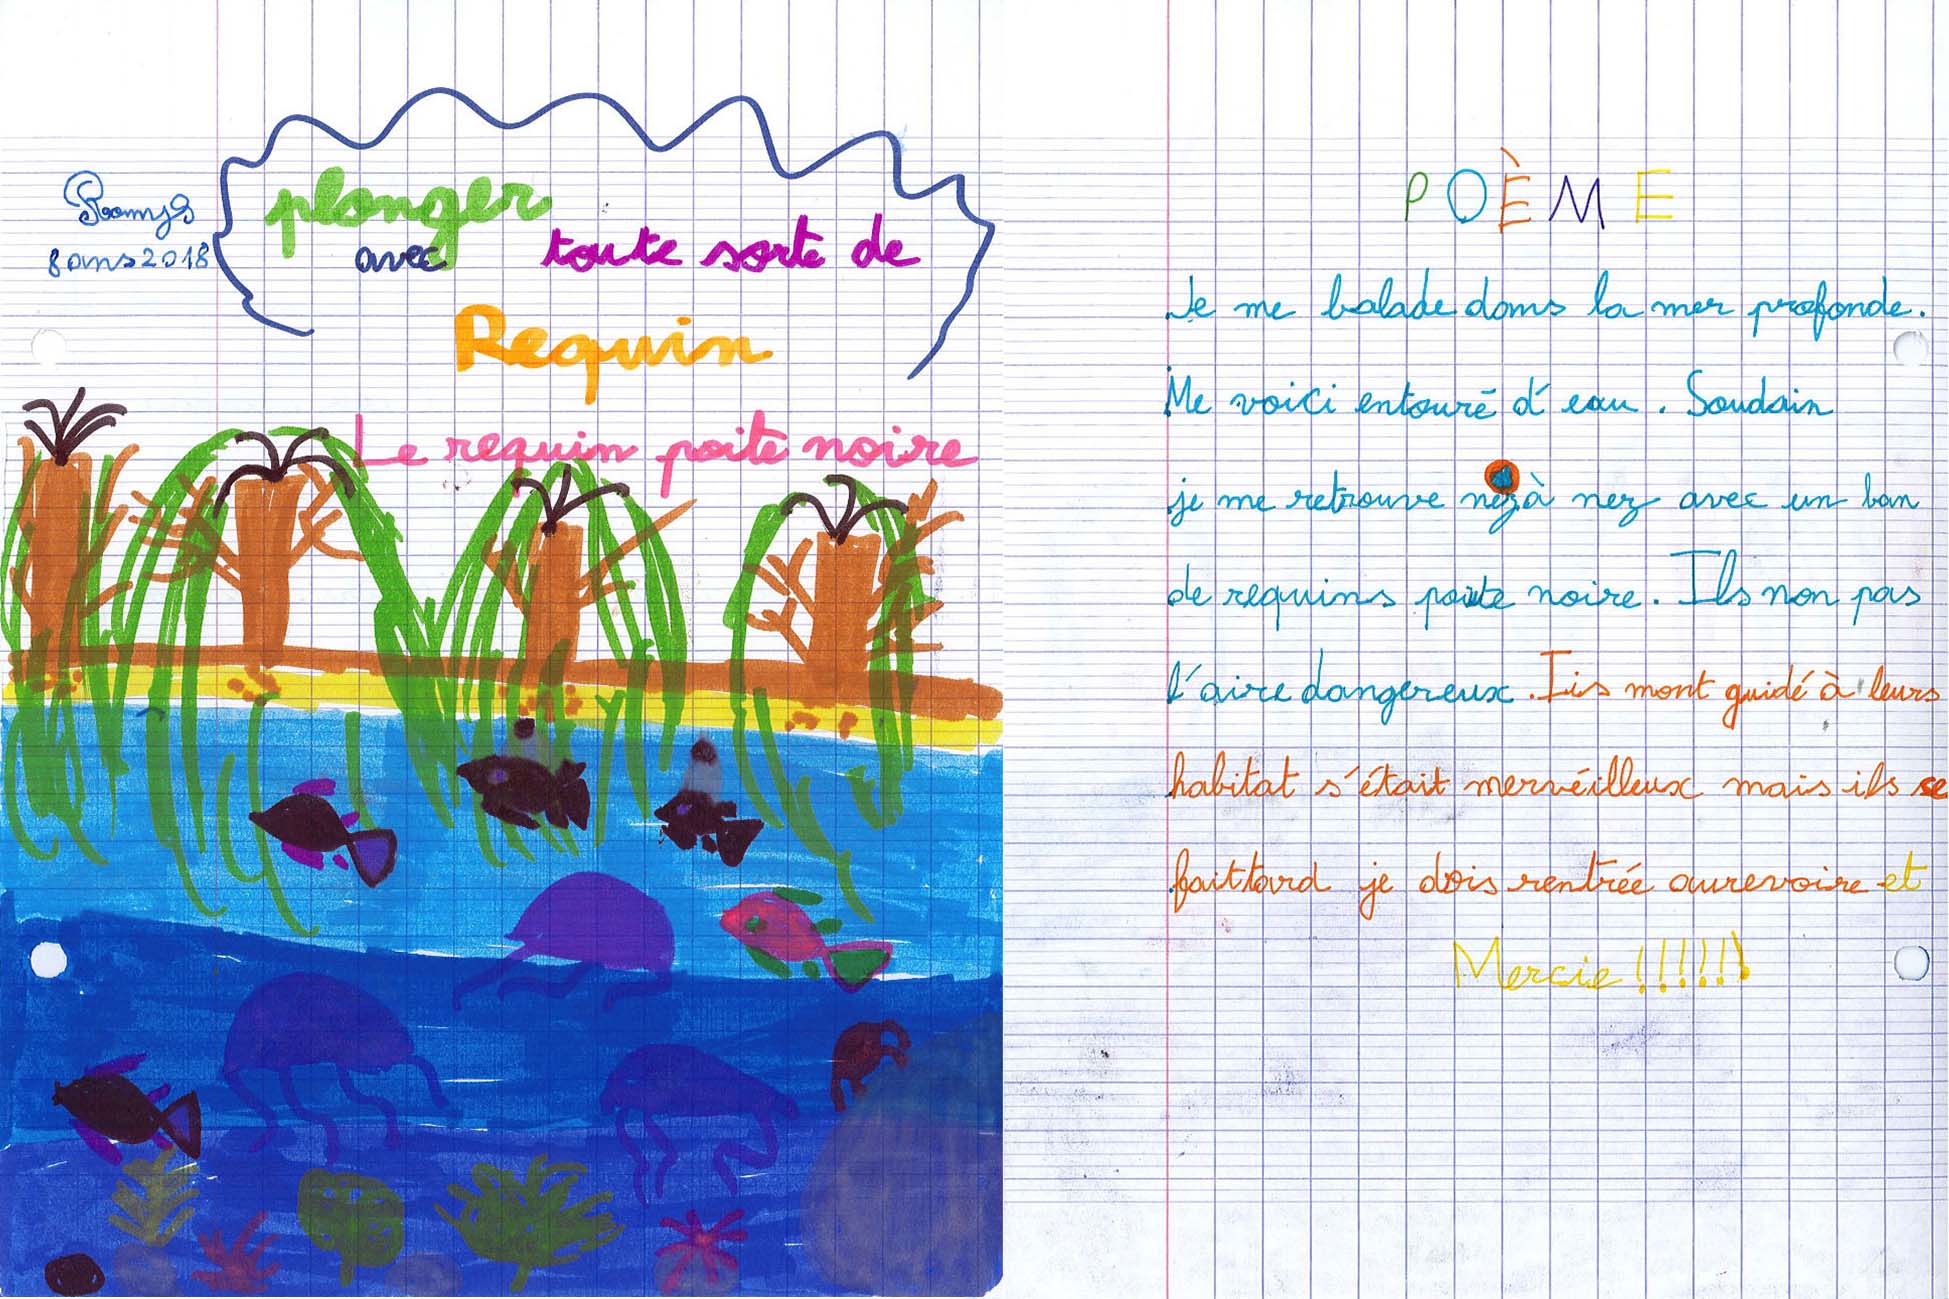 8 ans 2018
plonger
avec toute sorte de
Requin
Le requin poite noire
POÈME
Je me balade dans la mer profonde.
Me voici entouré d'eau. Soudain
je me retrouve nez à nez avec un ban
de requins pointe noire. Ils non pas
l'aire dangereux. Iis mont guidé à leurs
habitat s'était mervéilleux mais ils se
fait tard je dois rentrée aurevoire et
Mercie !!!!!!